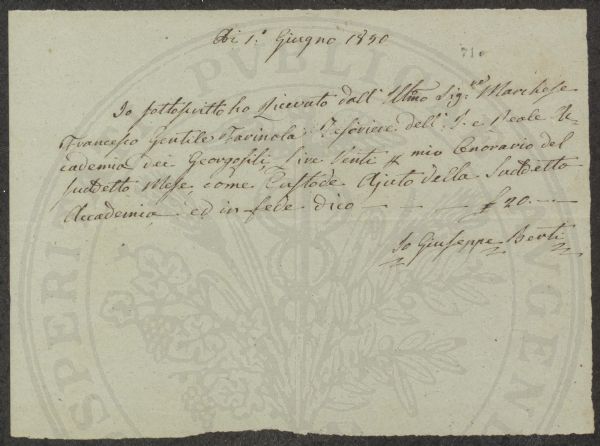 Di 1.º Giugno 1850
710
Io sottoscritto ho Ricevuto dall' Illmo Sig.re Marchese
Francesco Gentile Farinola Tesoriere dell' I. e Reale Ac-
cademia dei Georgofili, Lire Venti p mio Onorario del
suddetto Mese come Custode Ajuto della Suddetta
Accademia ed in fede dico — — £ 20. —
Io Giuseppe Berti
PVBLIC
SPERI
VGEND